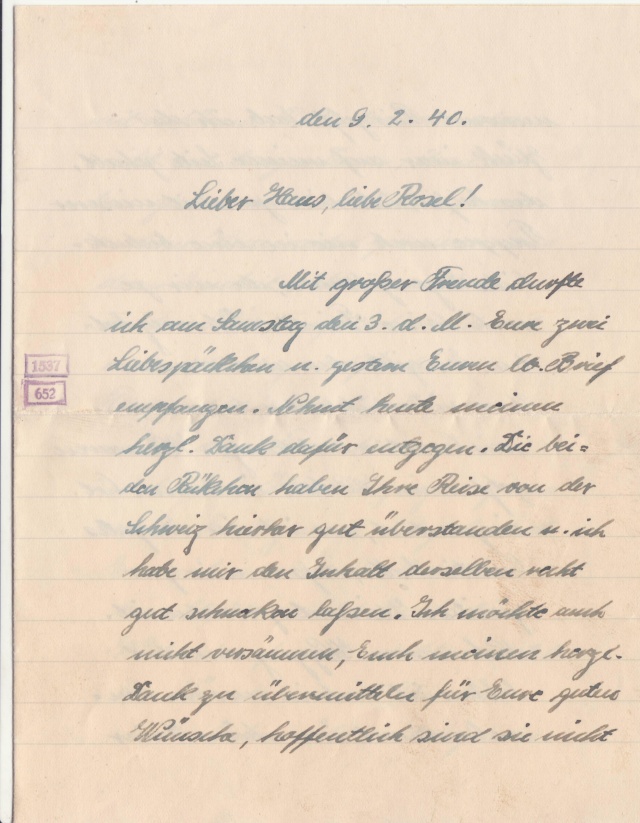 den 9. 2. 40.
Lieber Hans, liebe Rosel!
Mit großer Freude durfte
ich am Samstag den 3. d. M. Eure zwei
Liebespäckchen u. gestern Euren lb. Brief
empfangen. Nehmt heute meinen
herzl. Dank dafür entgegen. Die bei=
den Päkchen haben Ihre Reise von der
Schweiz hierher gut überstanden u. ich
habe mir den Inhalt derselben recht
gut schmeken laßen. Ich möchte auch
nicht versäumen, Euch meinen herzl.
Dank zu übermitteln für Eure guten
Wünsche, hoffentlich sind sie nicht
1537
652